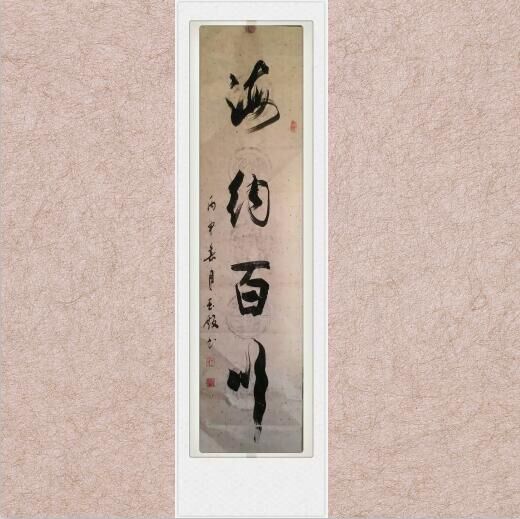 海纳百川
丙申春月玉骏书